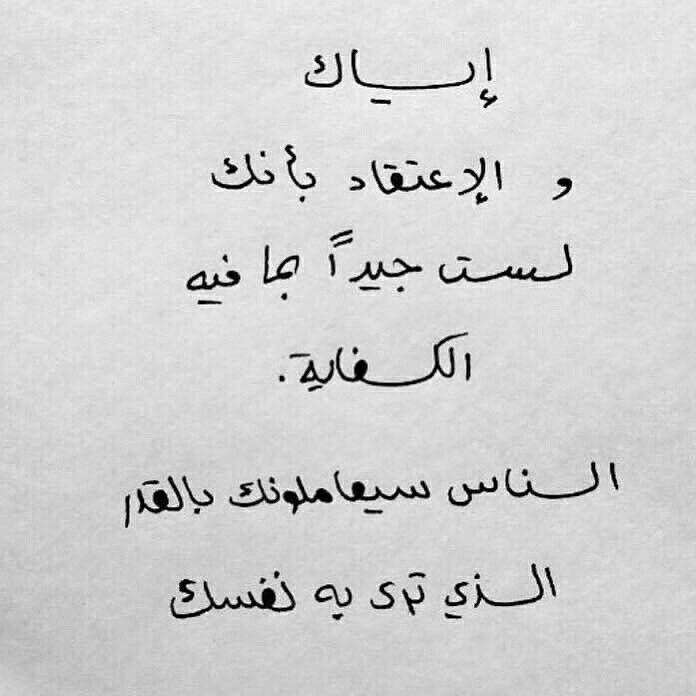 إياك
و الإعتقاد بأنك
لست جيداً بما فيه
الكفاية.
الناس سيعاملونك بالقدر
الذي ترى به نفسك